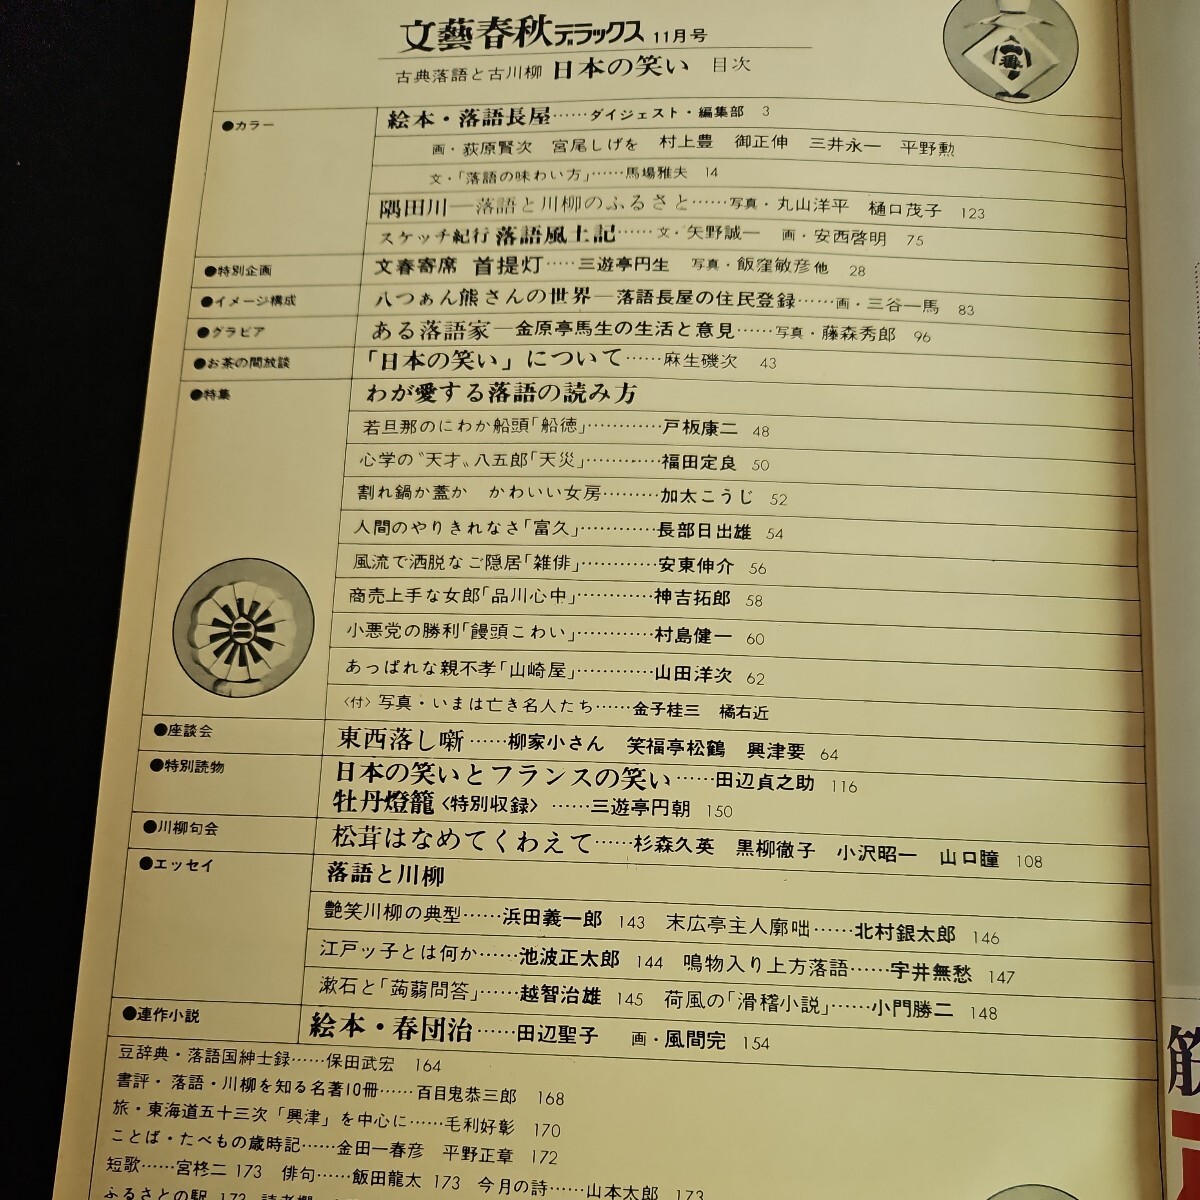 文藝春秋デラックス 11月号
古典落語と古川柳 日本の笑い 目次
●カラー
絵本・落語長屋……ダイジェスト・編集部 3
画・荻原賢次 宮尾しげを 村上豊 御正伸 三井永一 平野勲
文・「落語の味わい方」……馬場雅夫 14
隅田川―落語と川柳のふるさと……写真・丸山洋平 樋口茂子 123
スケッチ紀行 落語風土記……文・矢野誠一 画・安西啓明 75
●特別企画
文春寄席 首提灯……三遊亭円生 写真・飯窪敏彦他 28
●イメージ構成
八つぁん熊さんの世界―落語長屋の住民登録……画・三谷一馬 83
●グラビア
ある落語家―金原亭馬生の生活と意見……写真・藤森秀郎 96
●お茶の間放談
「日本の笑い」について……麻生磯次 43
●特集
わが愛する落語の読み方
若旦那のにわか船頭「船徳」…………戸板康二 48
心学の〝天才〟八五郎「天災」…………福田定良 50
割れ鍋か蓋か かわいい女房………加太こうじ 52
人間のやりきれなさ「富久」…………長部日出雄 54
風流で洒脱なご隠居「雑俳」…………安東伸介 56
商売上手な女郎「品川心中」…………神吉拓郎 58
小悪党の勝利「饅頭こわい」…………村島健一 60
あっぱれな親不孝「山崎屋」…………山田洋次 62
〈付〉写真・いまは亡き名人たち……金子桂三 橘右近
●座談会
東西落し噺……柳家小さん 笑福亭松鶴 興津要 64
●特別読物
日本の笑いとフランスの笑い……田辺貞之助 116
牡丹燈籠〈特別収録〉……三遊亭円朝 150
●川柳句会
松茸はなめてくわえて……杉森久英 黒柳徹子 小沢昭一 山口瞳 108
●エッセイ
落語と川柳
艶笑川柳の典型……浜田義一郎 143 末広亭主人廓咄……北村銀太郎 146
江戸ッ子とは何か……池波正太郎 144 鳴物入り上方落語……宇井無愁 147
漱石と「蒟蒻問答」……越智治雄 145 荷風の「滑稽小説」……小門勝二 148
●連作小説
絵本・春団治……田辺聖子 画・風間完 154
豆辞典・落語国紳士録……保田武宏 164
書評・落語・川柳を知る名著10冊……百目鬼恭三郎 168
旅・東海道五十三次「興津」を中心に……毛利好彰 170
ことば・たべもの歳時記……金田一春彦 平野正章 172
短歌……宮柊二 173 俳句……飯田龍太 173 今月の詩……山本太郎 173
ふるさとの駅 173 読者欄